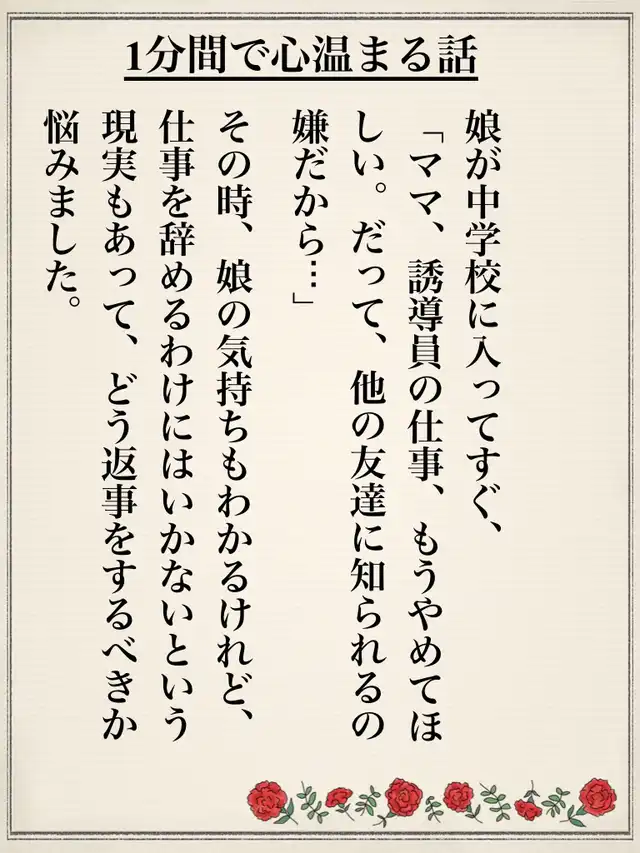 1分間で心温まる話
娘が中学校に入ってすぐ、
「ママ、誘導員の仕事、もうやめてほ
しい。だって、他の友達に知られるの
嫌だから…」
その時、娘の気持ちもわかるけれど、
仕事を辞めるわけにはいかないという
現実もあって、どう返事をするべきか
悩みました。